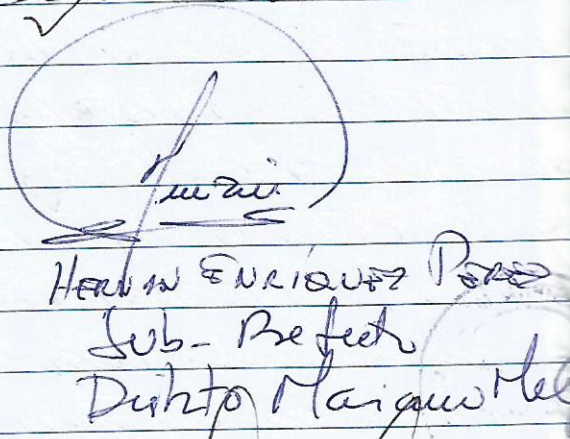 HERNAN ENRIQUEZ PEREZ
Sub-Prefecto
Distrito Mariano Mel